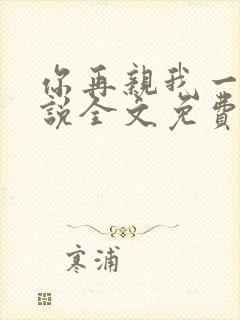 你再親我一
説全文免費
寒浦